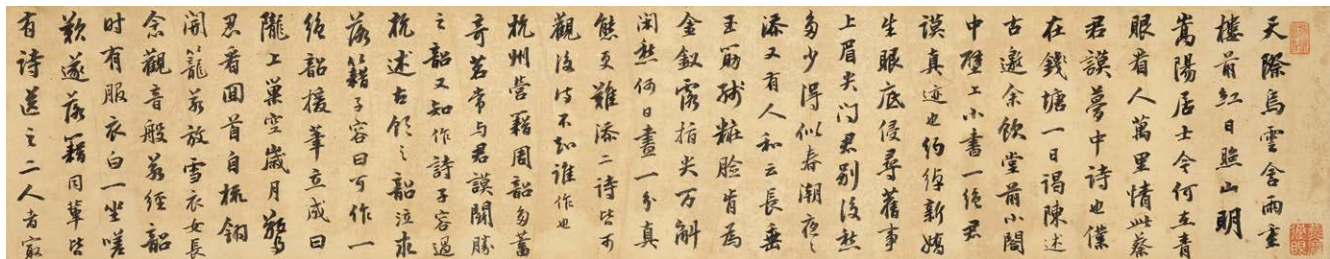 天際烏雲含雨重
樓前紅日照山明
嵩陽居士今何在青
眼看人萬里情此蔡
君謨夢中詩也僕
在錢塘一日謁陳述
古邀余飲堂前小閣
中壁上小書一絕君
謨真迹也約綽新嬌
生眼底侵尋舊事
上眉尖問君別後愁
多少得似春潮夜〻
添又有人和云長垂
玉筯殘粧臉肯為
金釵露指尖万斛
閑愁何日盡一分真
態更難添二詩皆可
觀後詩不知誰作也
杭州營籍周韶多蓄
奇茗常与君謨鬭勝
之韶又知作詩子容過
杭述古飲之韶泣求
落籍子容曰可作一
絕韶援筆立成曰
隴上巢空歲月驚
忍看回首自梳翎
開籠若放雪衣女長
念觀音般若經韶
時有服衣白一坐嗟
歎遂落籍同輩皆
有詩送之二人者最